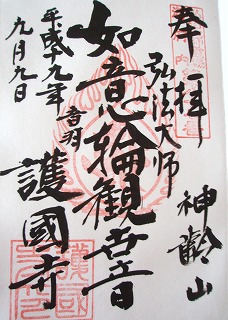 奉拝
弘法大師
神齢山
如意輪観世音
音羽
護國寺
平成十九年
九月九日